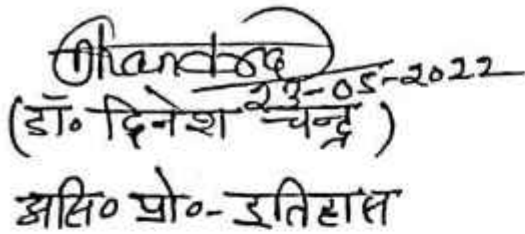 Chandra
23-05-2022
(डॉ० दिनेश चन्द्र)
असि० प्रो०- इतिहास